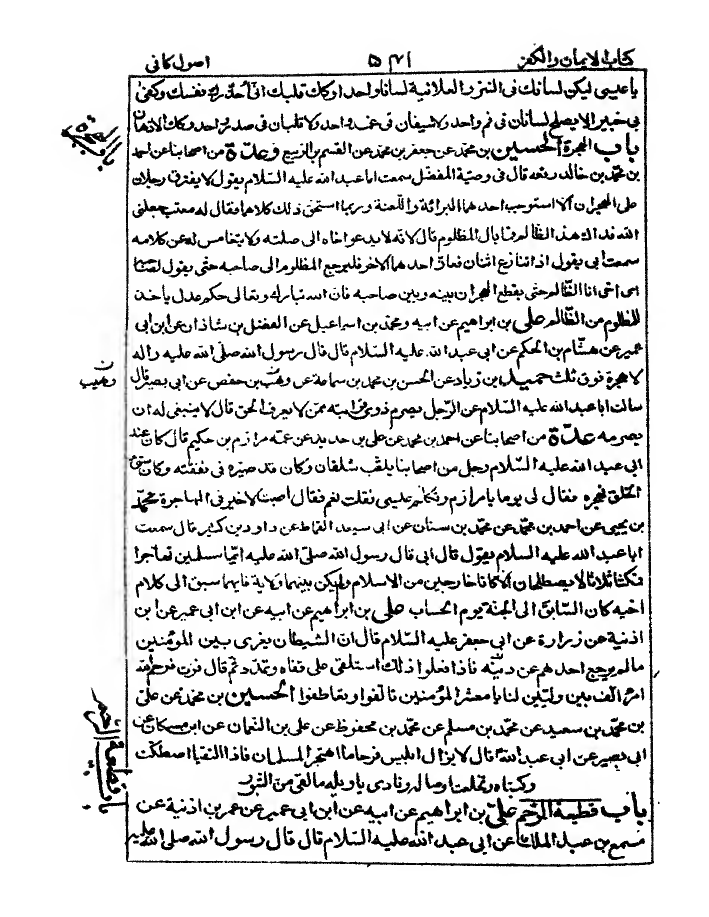 كتاب الايمان والكفر
۵۴۱
اصول كافى
يا عيسى ليكن لسانك فى السر والعلانية لسانا واحدا وكك قلبك انى احذرك نفسك وكفى
بى خبيرا لا يصلح لسانان فى فم واحد ولا سيفان فى غمد واحد ولا قلبان فى صدر واحد وكك الاذهان
باب الهجرة الحسين بن محمد عن جعفر بن محمد عن القسم بن الربيع وعدة من اصحابنا عن احمد
بن محمد بن خالد رفعه قال فى وصية المفضل سمعت ابا عبد الله عليه السلام يقول لا يفترق رجلان
على الهجران الا استوجب احدهما البرائة واللعنة وربما استحق ذلك كلاهما فقال له معتب جعلنى
الله فداك هذا الظالم فما بال المظلوم قال لانه لا يدعو اخاه الى صلته ولا يتغامس له عن كلامه
سمعت ابى يقول اذا تنازع اثنان فعاز احدهما الاخر فليرجع المظلوم الى صاحبه حتى يقول لصاحبه
اى اخى انا الظالم حتى يقطع الهجران بينه وبين صاحبه فان الله تبارك وتعالى حكم عدل ياخذ
للمظلوم من الظالم على بن ابراهيم عن ابيه ومحمد بن اسماعيل عن الفضل بن شاذان عن ابن ابى
عمير عن هشام بن الحكم عن ابى عبد الله عليه السلام قال قال رسول الله صلى الله عليه واله
لا هجرة فوق ثلث حميد بن زياد عن الحسن بن محمد بن سماعة عن وهب بن حفص عن ابى بصير قال
سالت ابا عبد الله عليه السلام عن الرجل يصرم ذوى قرابته ممن لا يعرف الحق قال لا ينبغى له ان
يصرمه عدة من اصحابنا عن احمد بن محمد عن على بن حديد عن عمه مرازم بن حكيم قال كان عند
ابى عبد الله عليه السلام رجل من اصحابنا يلقب شلقان وكان قد صيره فى نفقته وكان سيئ
الخلق فهجره فقال لى يوما يا مرازم وتكلم عيسى فقلت نعم فقال اصبت لا خير فى المهاجرة محمد
بن يحيى عن احمد بن محمد عن محمد بن سنان عن ابى سعيد القماط عن داود بن كثير قال سمعت
ابا عبد الله عليه السلام يقول قال ابى قال رسول الله صلى الله عليه ايما مسلمين تهاجرا
فمكثا ثلاثا لا يصطلحان الا كانا خارجين من الاسلام ولم يكن بينهما ولاية فايهما سبق الى كلام
اخيه كان السابق الى الجنة يوم الحساب على بن ابراهيم عن ابيه عن ابن ابى عمير عن ابن
اذنية عن زرارة عن ابى جعفر عليه السلام قال ان الشيطان يغرى بين المؤمنين
مالم يرجع احدهم عن دينه فاذا فعلوا ذلك استلقى على قفاه وتمدد ثم قال فزت فرحم الله
امرءا الف بين وليين لنا يا معشر المؤمنين تالفوا وتعاطفوا الحسين بن محمد عن على
بن محمد بن سعيد عن محمد بن مسلم عن محمد بن محفوظ عن على بن النعمان عن ابن مسكان عن
ابى بصير عن ابى عبد الله قال لا يزال ابليس فرحا ما اهتجر المسلمان فاذا التقيا اصطكت
ركبتاه وتخلعت اوصاله ونادى يا ويله ما لقى من الثبور
باب قطيعة الرحم على بن ابراهيم عن ابيه عن ابن ابى عمير عن عمر بن اذنية عن
مسمع بن عبد الملك عن ابى عبد الله عليه السلام قال قال رسول الله صلى الله عليه
باب فى الهجرة
وهيب
باب فى قطيعة الرحم